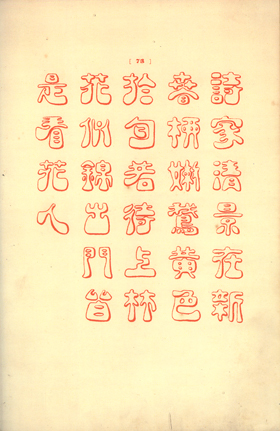 [ 73 ]
詩家清景在新
春柳嫩鵞黃色
拾句若待上林
花似錦出門皆
是看花人